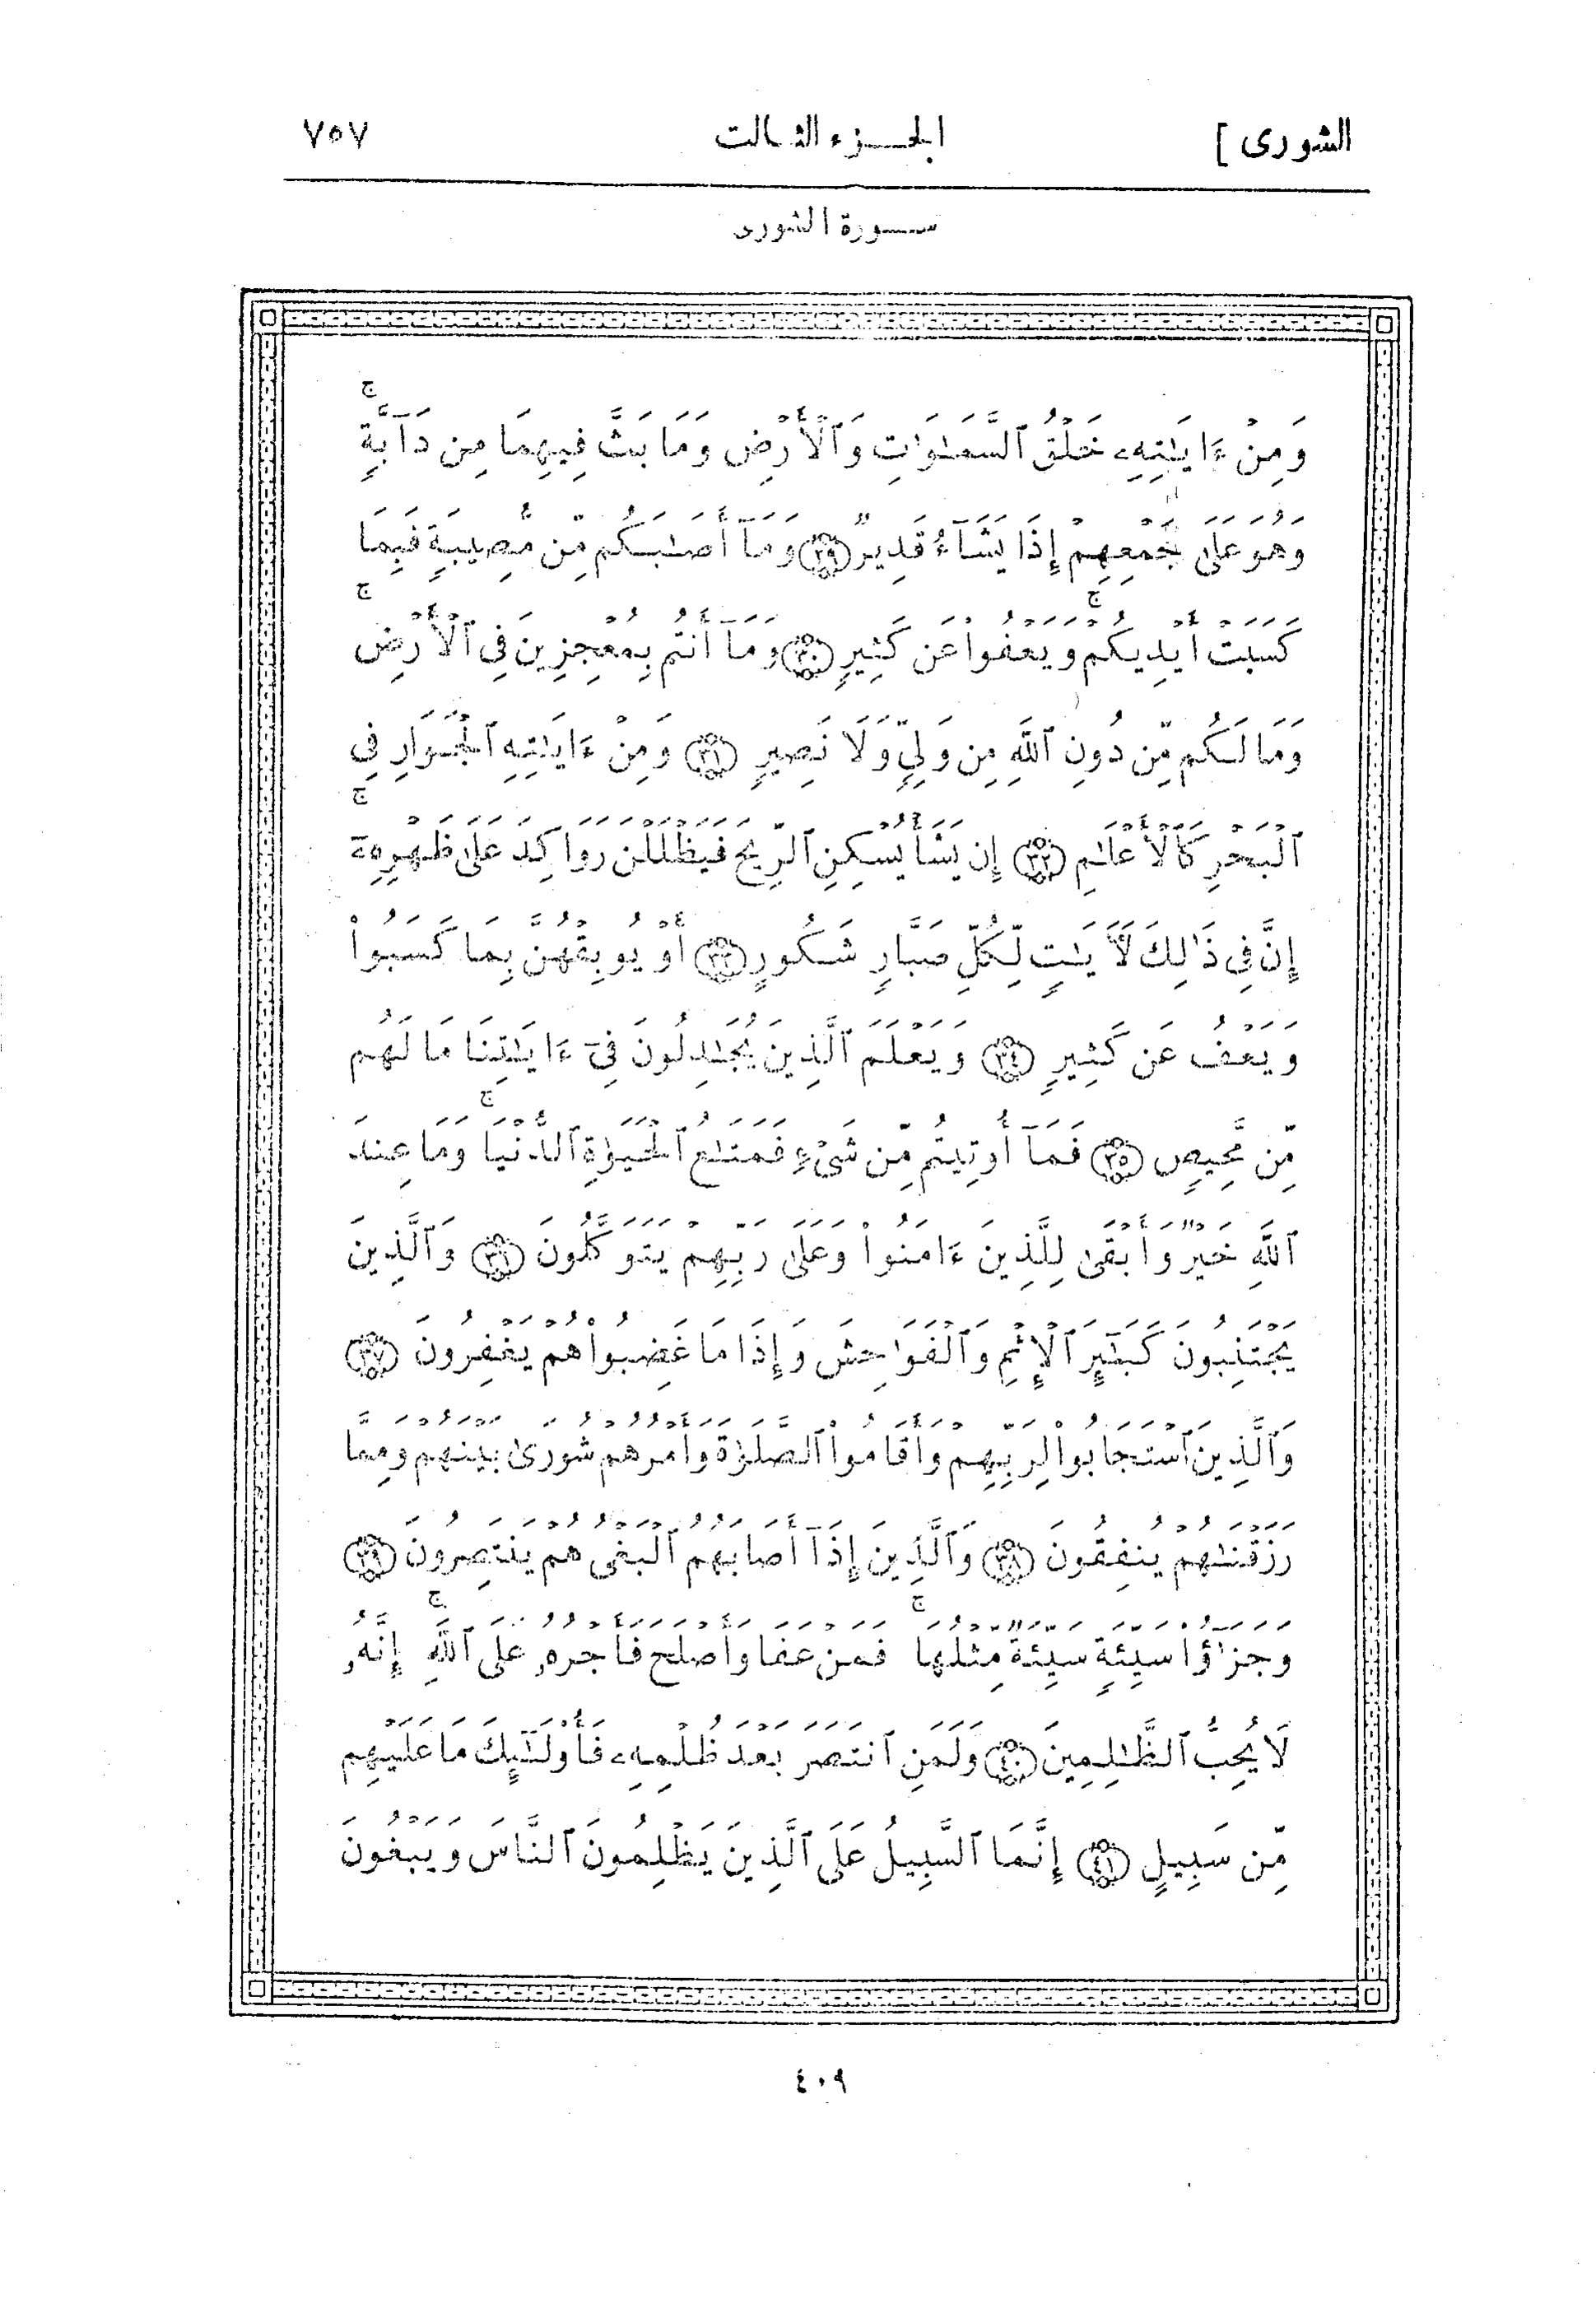 الشورى ]
الجـزء الثـالث
٧٥٧
سـورة الشورى
وَمِنْ ءَايَـٰتِهِۦ خَلْقُ ٱلسَّمَـٰوَٰتِ وَٱلْأَرْضِ وَمَا بَثَّ فِيهِمَا مِن دَآبَّةٍ ۚ
وَهُوَ عَلَىٰ جَمْعِهِمْ إِذَا يَشَآءُ قَدِيرٌ ﴿٢٩﴾ وَمَآ أَصَـٰبَكُم مِّن مُّصِيبَةٍ فَبِمَا
كَسَبَتْ أَيْدِيكُمْ وَيَعْفُوا۟ عَن كَثِيرٍ ﴿٣٠﴾ وَمَآ أَنتُم بِمُعْجِزِينَ فِى ٱلْأَرْضِ ۚ
وَمَا لَكُم مِّن دُونِ ٱللَّهِ مِن وَلِىٍّ وَلَا نَصِيرٍ ﴿٣١﴾ وَمِنْ ءَايَـٰتِهِ ٱلْجَوَارِ فِى
ٱلْبَحْرِ كَٱلْأَعْلَـٰمِ ﴿٣٢﴾ إِن يَشَأْ يُسْكِنِ ٱلرِّيحَ فَيَظْلَلْنَ رَوَاكِدَ عَلَىٰ ظَهْرِهِۦٓ ۚ
إِنَّ فِى ذَٰلِكَ لَـَٔايَـٰتٍ لِّكُلِّ صَبَّارٍ شَكُورٍ ﴿٣٣﴾ أَوْ يُوبِقْهُنَّ بِمَا كَسَبُوا۟
وَيَعْفُ عَن كَثِيرٍ ﴿٣٤﴾ وَيَعْلَمَ ٱلَّذِينَ يُجَـٰدِلُونَ فِىٓ ءَايَـٰتِنَا مَا لَهُم
مِّن مَّحِيصٍ ﴿٣٥﴾ فَمَآ أُوتِيتُم مِّن شَىْءٍ فَمَتَـٰعُ ٱلْحَيَوٰةِ ٱلدُّنْيَا ۚ وَمَا عِندَ
ٱللَّهِ خَيْرٌ وَأَبْقَىٰ لِلَّذِينَ ءَامَنُوا۟ وَعَلَىٰ رَبِّهِمْ يَتَوَكَّلُونَ ﴿٣٦﴾ وَٱلَّذِينَ
يَجْتَنِبُونَ كَبَـٰٓئِرَ ٱلْإِثْمِ وَٱلْفَوَٰحِشَ وَإِذَا مَا غَضِبُوا۟ هُمْ يَغْفِرُونَ ﴿٣٧﴾
وَٱلَّذِينَ ٱسْتَجَابُوا۟ لِرَبِّهِمْ وَأَقَامُوا۟ ٱلصَّلَوٰةَ وَأَمْرُهُمْ شُورَىٰ بَيْنَهُمْ وَمِمَّا
رَزَقْنَـٰهُمْ يُنفِقُونَ ﴿٣٨﴾ وَٱلَّذِينَ إِذَآ أَصَابَهُمُ ٱلْبَغْىُ هُمْ يَنتَصِرُونَ ﴿٣٩﴾
وَجَزَٰٓؤُا۟ سَيِّئَةٍ سَيِّئَةٌ مِّثْلُهَا ۖ فَمَنْ عَفَا وَأَصْلَحَ فَأَجْرُهُۥ عَلَى ٱللَّهِ ۚ إِنَّهُۥ
لَا يُحِبُّ ٱلظَّـٰلِمِينَ ﴿٤٠﴾ وَلَمَنِ ٱنتَصَرَ بَعْدَ ظُلْمِهِۦ فَأُو۟لَـٰٓئِكَ مَا عَلَيْهِم
مِّن سَبِيلٍ ﴿٤١﴾ إِنَّمَا ٱلسَّبِيلُ عَلَى ٱلَّذِينَ يَظْلِمُونَ ٱلنَّاسَ وَيَبْغُونَ
٤٠٩